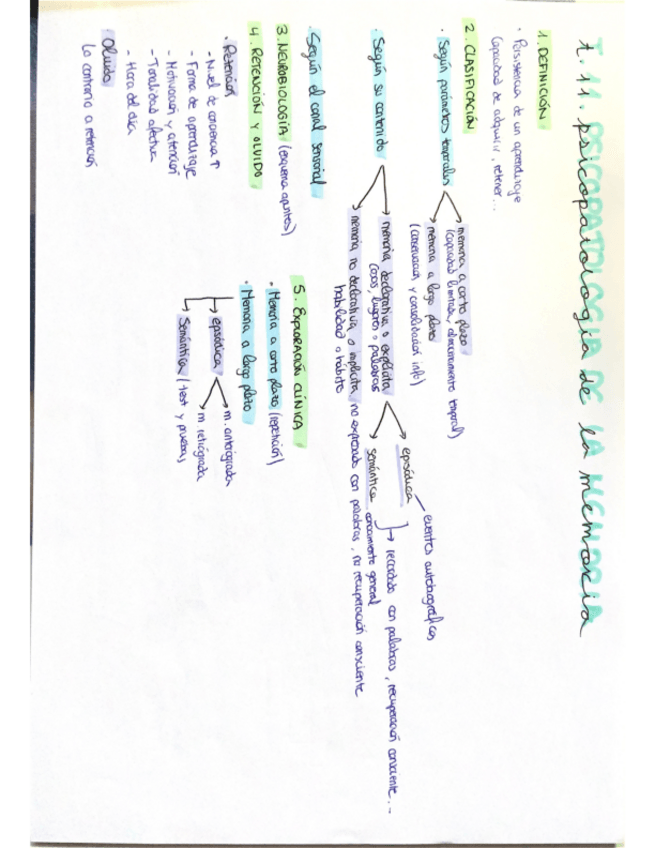 T.11. PSICOPATOLOGIA DE LA MEMORIA
t.11. psicopatología de la memoria
1. DEFINICIÓN
· Persistencia de un aprendizaje
Capacidad de adquirir, retener...
2. CLASIFICACIÓN
· Según parámetros temporales
memoria a corto plazo
(capacidad limitada, almacenamiento temporal)
memoria a largo plazo
(conservación y consolidación info)
· Según su contenido
memoria declarativa o explícita
(cosas, lugares o palabras
episódica
eventos autobiográficos
semántica conocimiento general
→ recordado con palabras, recuperación consciente...
memoria no declarativa o implícita no expresado con palabras, no recuperación consciente
habilidad o hábito
· Según el canal sensorial
3. NEUROBIOLOGÍA (esquema apuntes)
4. RETENCIÓN Y OLVIDO
· Retención
- Nivel de conciencia ↑
- Forma de aprendizaje
- Motivación y atención
- Tonalidad afectiva
- Hora del día
Olvido
Lo contrario a retención
5. EXPLORACIÓN CLÍNICA
· Memoria a corto plazo (repetición)
· Memoria a largo plazo
episódica
m. anterógrada
m. retrógrada
semántica (test y pruebas)